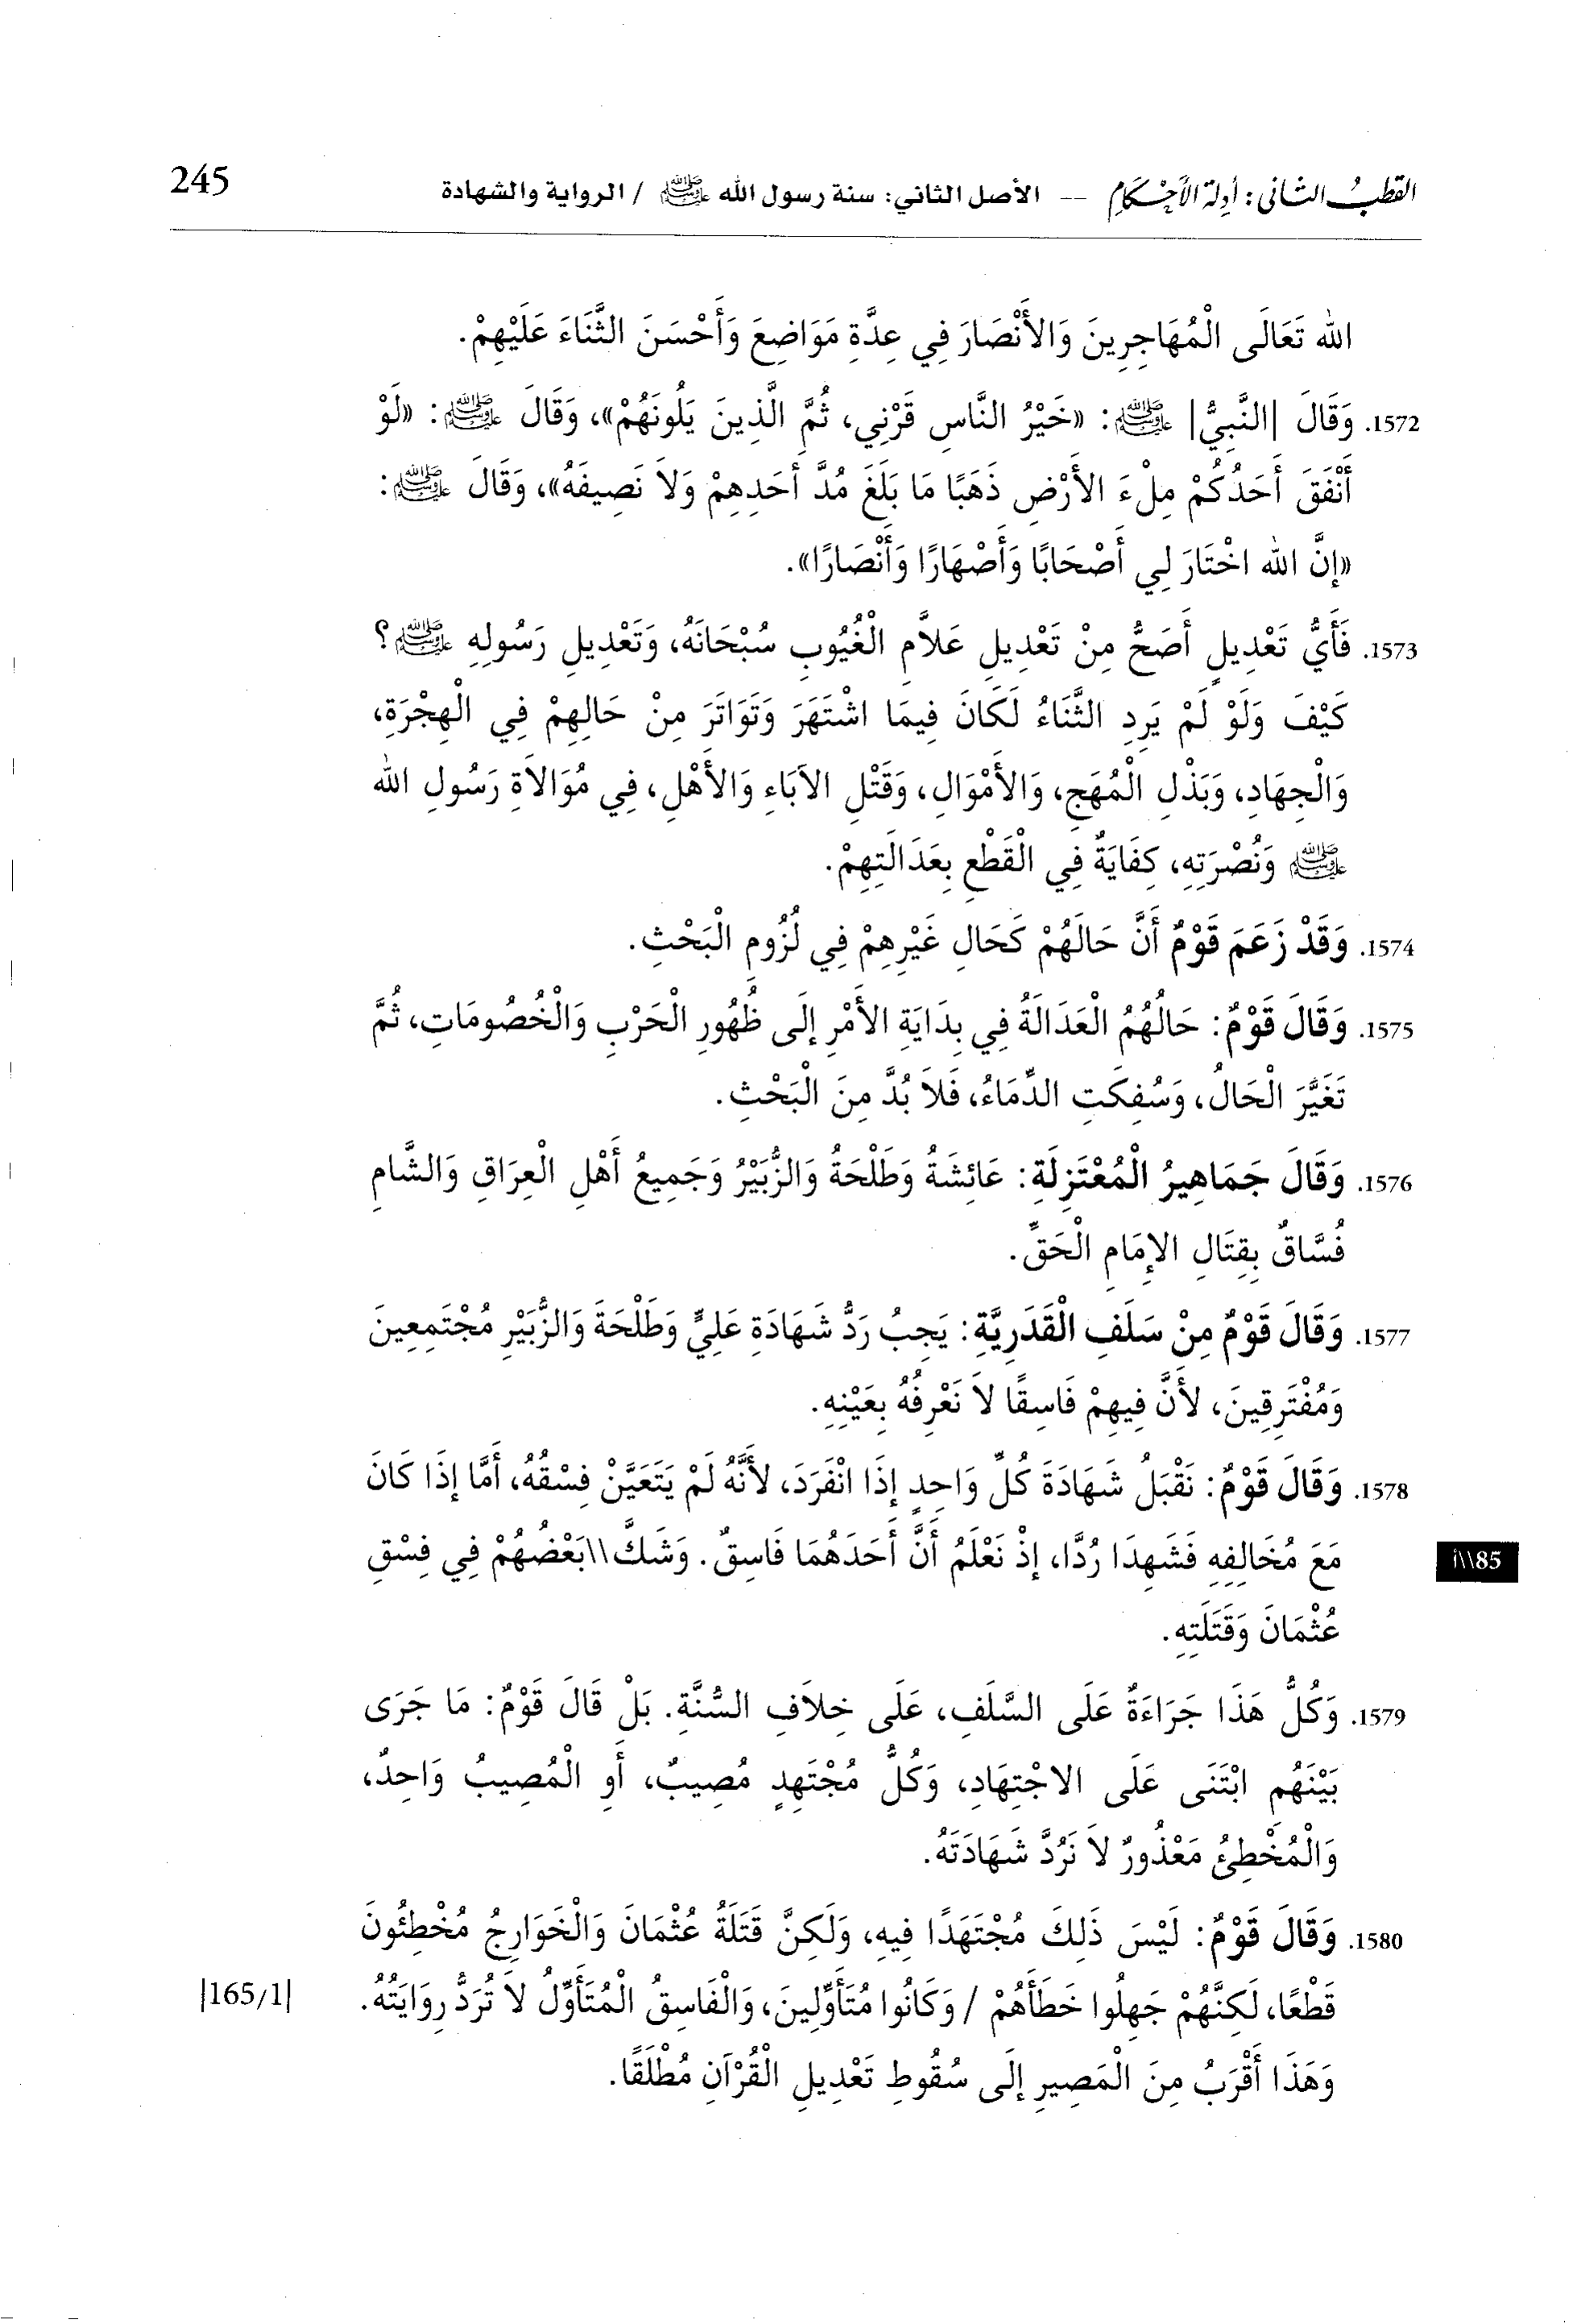 القطب الثاني: أدلة الأحكام -- الأصل الثاني: سنة رسول الله ﷺ / الرواية والشهادة 245
الله تَعَالَى الْمُهَاجِرِينَ وَالأَنْصَارَ فِي عِدَّةِ مَوَاضِعَ وَأَحْسَنَ الثَّنَاءَ عَلَيْهِمْ.
1572. وَقَالَ |النَّبِيُّ| ﷺ: «خَيْرُ النَّاسِ قَرْنِي، ثُمَّ الَّذِينَ يَلُونَهُمْ»، وَقَالَ ﷺ: «لَوْ
أَنْفَقَ أَحَدُكُمْ مِلْءَ الأَرْضِ ذَهَبًا مَا بَلَغَ مُدَّ أَحَدِهِمْ وَلاَ نَصِيفَهُ»، وَقَالَ ﷺ:
«إِنَّ الله اخْتَارَ لِي أَصْحَابًا وَأَصْهَارًا وَأَنْصَارًا».
1573. فَأَيُّ تَعْدِيلٍ أَصَحُّ مِنْ تَعْدِيلِ عَلاَّمِ الْغُيُوبِ سُبْحَانَهُ، وَتَعْدِيلِ رَسُولِهِ ﷺ؟
كَيْفَ وَلَوْ لَمْ يَرِدِ الثَّنَاءُ لَكَانَ فِيمَا اشْتَهَرَ وَتَوَاتَرَ مِنْ حَالِهِمْ فِي الْهِجْرَةِ،
وَالْجِهَادِ، وَبَذْلِ الْمُهَجِ، وَالأَمْوَالِ، وَقَتْلِ الآبَاءِ وَالأَهْلِ، فِي مُوَالاَةِ رَسُولِ الله
ﷺ وَنُصْرَتِهِ، كِفَايَةٌ فِي الْقَطْعِ بِعَدَالَتِهِمْ.
1574. وَقَدْ زَعَمَ قَوْمٌ أَنَّ حَالَهُمْ كَحَالِ غَيْرِهِمْ فِي لُزُومِ الْبَحْثِ.
1575. وَقَالَ قَوْمٌ: حَالُهُمُ الْعَدَالَةُ فِي بِدَايَةِ الأَمْرِ إِلَى ظُهُورِ الْحَرْبِ وَالْخُصُومَاتِ، ثُمَّ
تَغَيَّرَ الْحَالُ، وَسُفِكَتِ الدِّمَاءُ، فَلاَ بُدَّ مِنَ الْبَحْثِ.
1576. وَقَالَ جَمَاهِيرُ الْمُعْتَزِلَةِ: عَائِشَةُ وَطَلْحَةُ وَالزُّبَيْرُ وَجَمِيعُ أَهْلِ الْعِرَاقِ وَالشَّامِ
فُسَّاقٌ بِقِتَالِ الإِمَامِ الْحَقِّ.
1577. وَقَالَ قَوْمٌ مِنْ سَلَفِ الْقَدَرِيَّةِ: يَجِبُ رَدُّ شَهَادَةِ عَلِيٍّ وَطَلْحَةَ وَالزُّبَيْرِ مُجْتَمِعِينَ
وَمُفْتَرِقِينَ، لأَنَّ فِيهِمْ فَاسِقًا لاَ نَعْرِفُهُ بِعَيْنِهِ.
1578. وَقَالَ قَوْمٌ: نَقْبَلُ شَهَادَةَ كُلِّ وَاحِدٍ إِذَا انْفَرَدَ، لأَنَّهُ لَمْ يَتَعَيَّنْ فِسْقُهُ، أَمَّا إِذَا كَانَ
مَعَ مُخَالِفِهِ فَشَهِدَا رُدَّا، إِذْ نَعْلَمُ أَنَّ أَحَدَهُمَا فَاسِقٌ. وَشَكَّ\\بَعْضُهُمْ فِي فِسْقِ
85\\أ
عُثْمَانَ وَقَتَلَتِهِ.
1579. وَكُلُّ هَذَا جَرَاءَةٌ عَلَى السَّلَفِ، عَلَى خِلاَفِ السُّنَّةِ. بَلْ قَالَ قَوْمٌ: مَا جَرَى
بَيْنَهُم ابْتَنَى عَلَى الاجْتِهَادِ، وَكُلُّ مُجْتَهِدٍ مُصِيبٌ، أَوِ الْمُصِيبُ وَاحِدٌ،
وَالْمُخْطِئُ مَعْذُورٌ لاَ نَرُدُّ شَهَادَتَهُ.
1580. وَقَالَ قَوْمٌ: لَيْسَ ذَلِكَ مُجْتَهَدًا فِيهِ، وَلَكِنَّ قَتَلَةَ عُثْمَانَ وَالْخَوَارِجُ مُخْطِئُونَ
قَطْعًا، لَكِنَّهُمْ جَهِلُوا خَطَأَهُمْ / وَكَانُوا مُتَأَوِّلِينَ، وَالْفَاسِقُ الْمُتَأَوِّلُ لاَ تُرَدُّ رِوَايَتُهُ.
|165/1|
وَهَذَا أَقْرَبُ مِنَ الْمَصِيرِ إِلَى سُقُوطِ تَعْدِيلِ الْقُرْآنِ مُطْلَقًا.